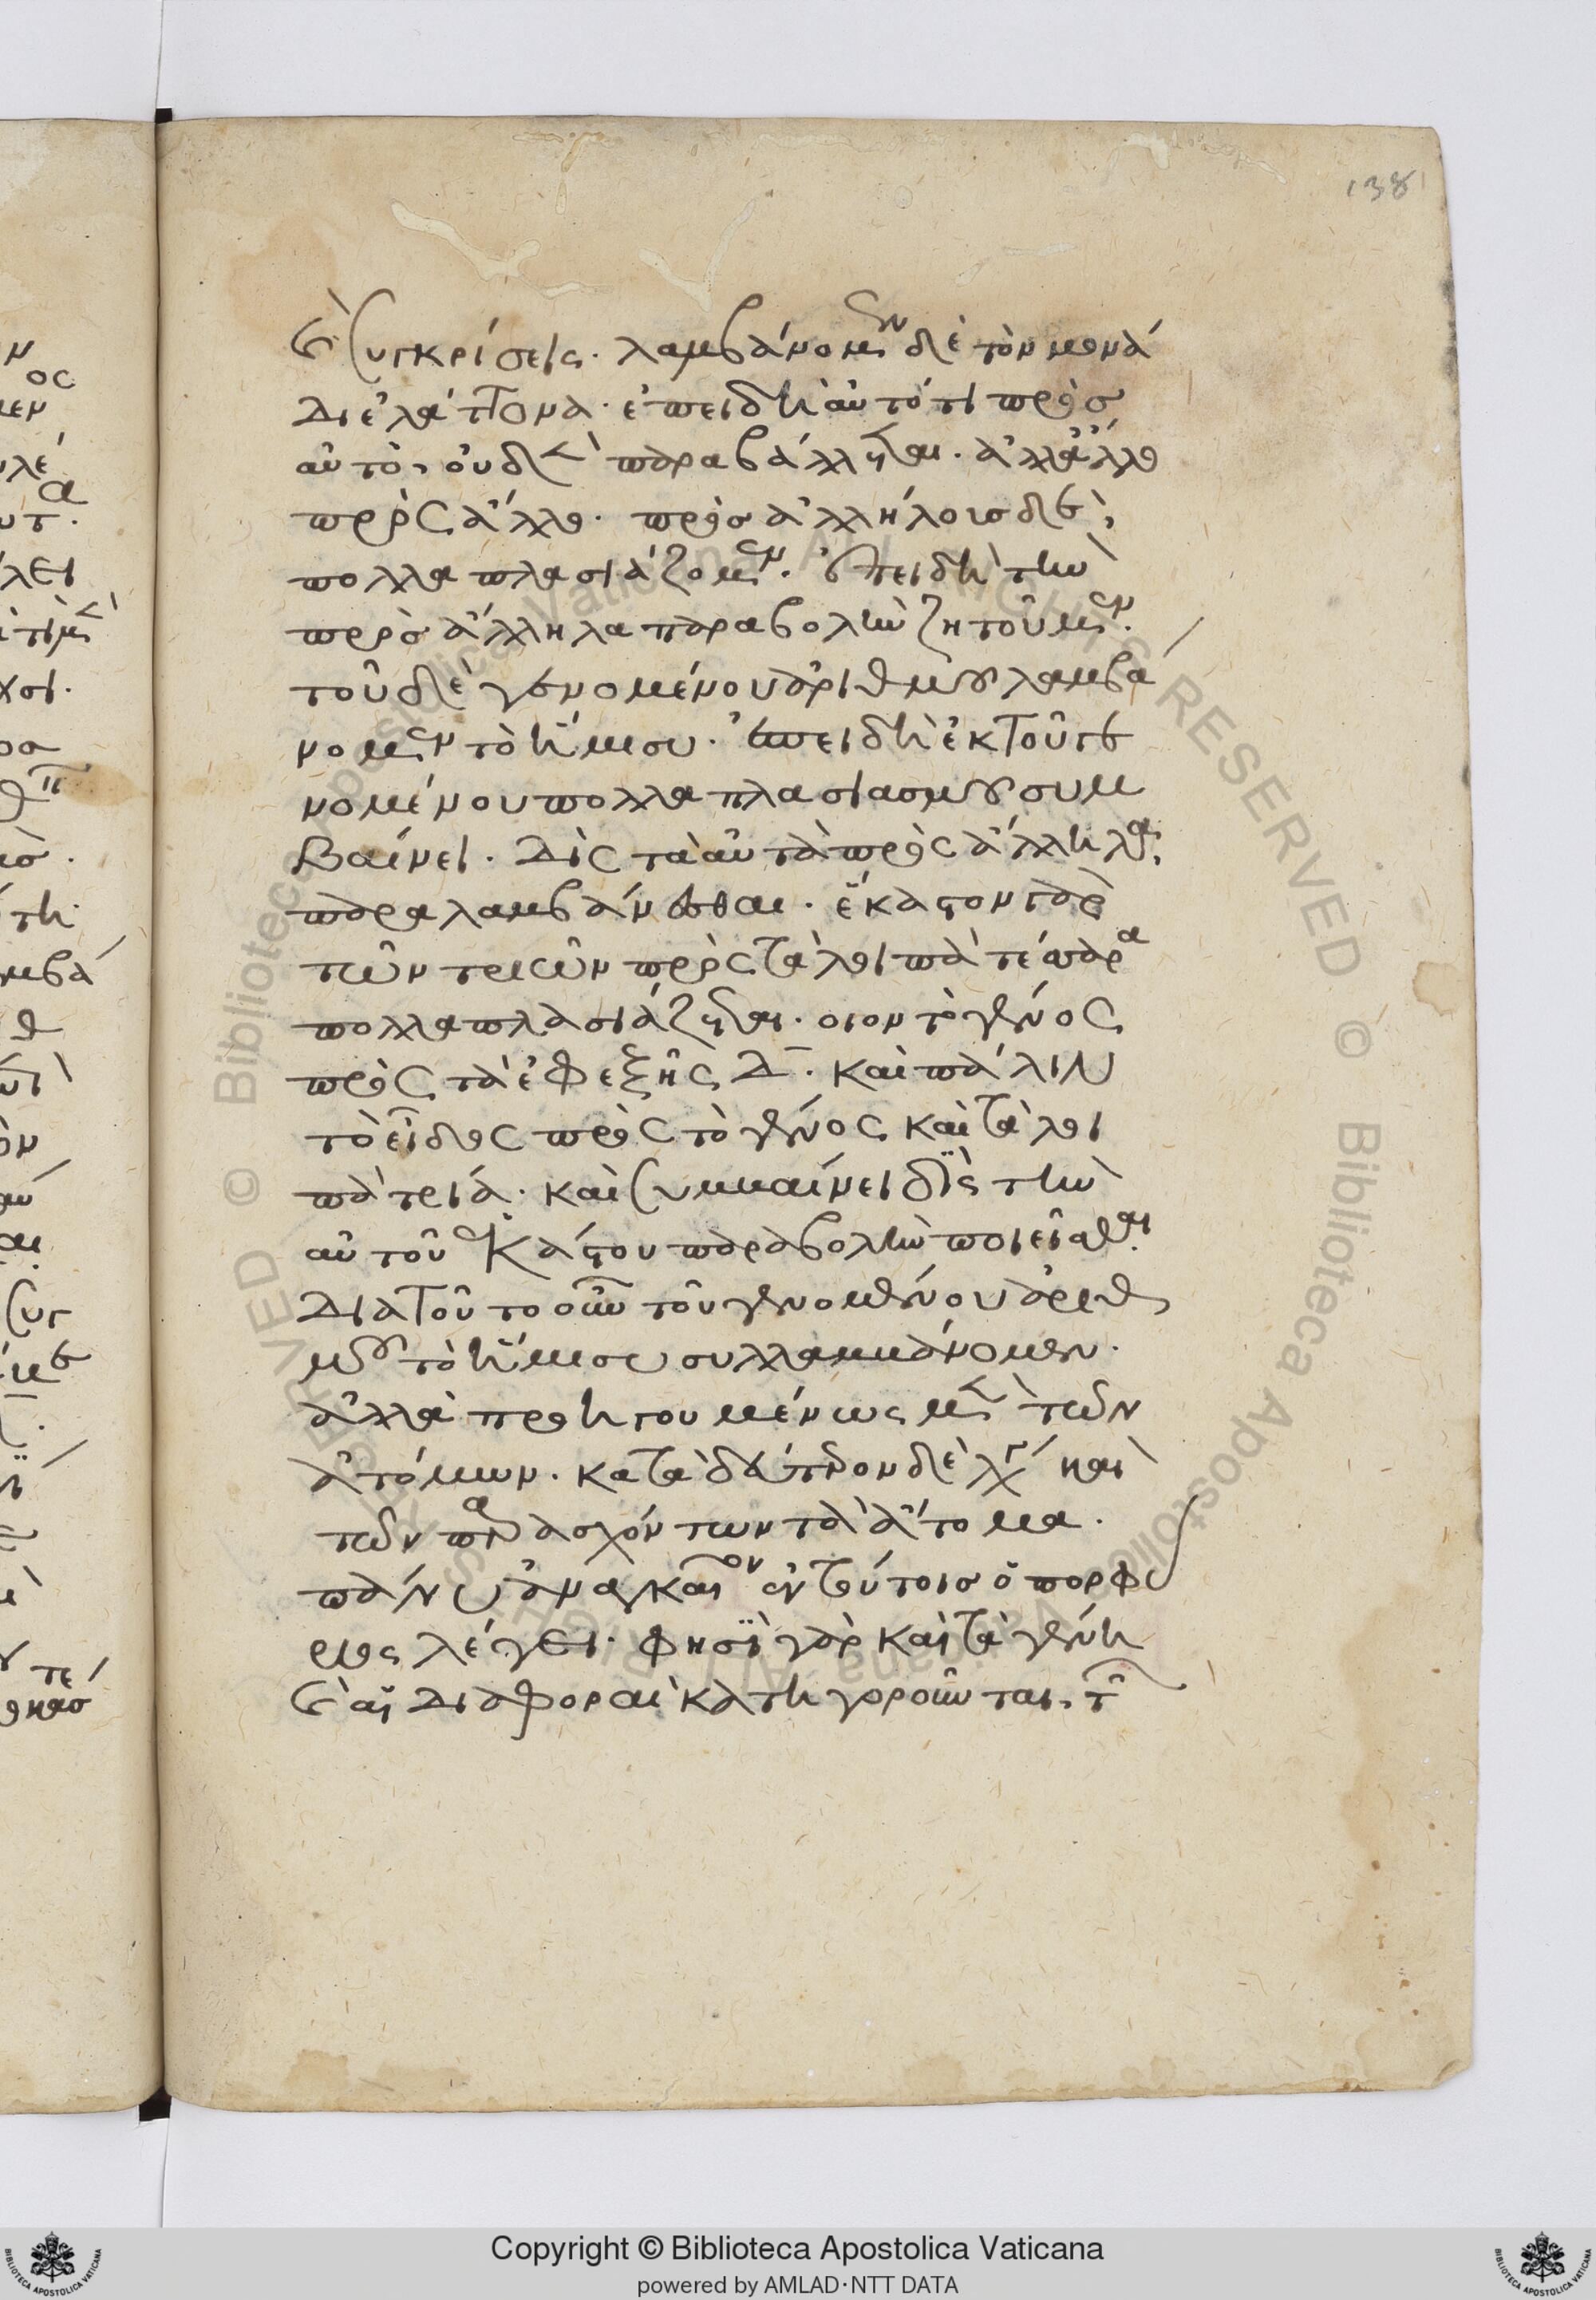 138
καὶ συγκρίσεις. λαμβάνομεν δὲ τὸν μονά
δι ἐλάττονα. ἐπειδὴ αὐτό τι πρὸσ
αὐτὸ, οὐδὲν παραβάλλεται. ἀλλ' ἄλλο
πρὸς ἄλλο. πρὸσ ἀλλήλοισ δὲ,
πολλαπλασιάζομεν. ἐπειδὴ τὴν
πρὸσ ἄλληλα παραβολὴν ζητοῦμεν.
τοῦ δὲ γενομένου ἀριθμοῦ λαμβά
νομεν τὸ ἥμισυ. ἐπειδὴ ἐκ τοῦ γε
νομένου πολλαπλασιασμοῦ συμ
βαίνει. δὶς τὰ αὐτὰ πρὸς ἄλληλα,
παραλαμβάνεσθαι. ἕκαστον γὰρ
τῶν τριῶν πρὸς τὰ λοιπὰ τέσσαρα
πολλαπλασιάζεται. οιον τὸ γένος
πρὸς τὰ ἐφεξῆς δ. καὶ πάλιν
τὸ εἶδος πρὸς τὸ γένος καὶ τὰ λοι
πὰ τρία. καὶ συμβαίνει δὶς τὴν
αὐτοῦ ἑκάστου παραβολὴν ποιεῖσθαι.
Διατοῦτο οὖν τοῦ γενομένου ἀριθ
μοῦ τὸ ἥμισυ συλλαμβάνομεν.
ἀλλὰ προηγουμένως μὲν τῶν
ἀτόμων. κατὰ δεύτερον δὲ λόγον καὶ
τῶν περιεχόντων τὰ ἄτομα.
πάνυ ἀναγκαῖον ἐν τούτοισ ὁ πορφύ
ριος λέγει. φησὶ γὰρ καὶ τὰ γένη
καὶ αἱ διαφοραὶ κατηγοροῦνται, τῶν
Copyright © Biblioteca Apostolica Vaticana
powered by AMLAD·NTT DATA